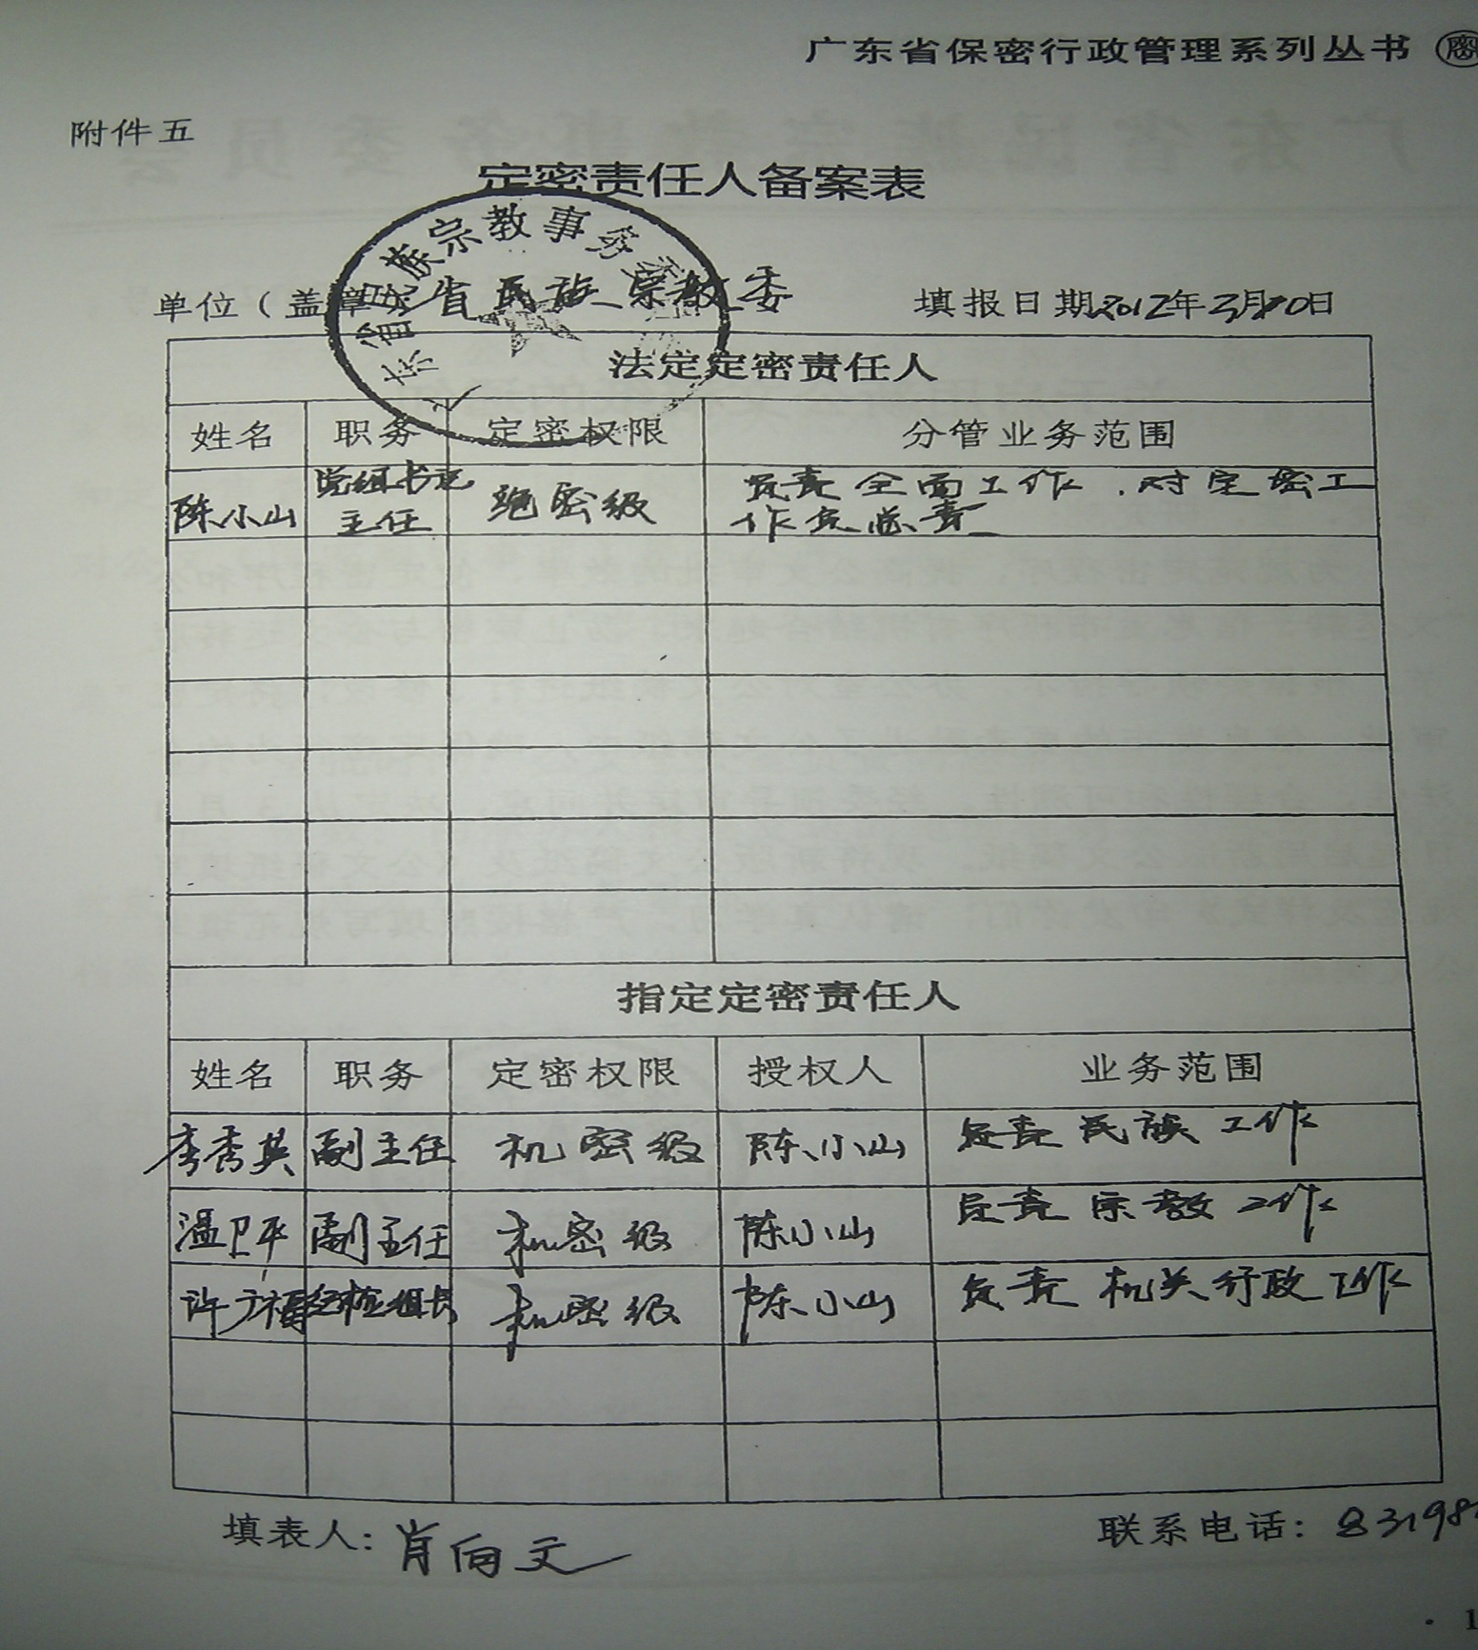 广东省保密行政管理系列丛书
附件五
定密责任人备案表
单位（盖章）省民族宗教委 填报日期2012年3月20日
省民族宗教事务委
法定定密责任人
姓名 职务 定密权限 分管业务范围
陈小山 党组书记 绝密级 负责全面工作，对定密工
主任 作负总责
指定定密责任人
姓名 职务 定密权限 授权人 业务范围
李秀英 副主任 机密级 陈小山 负责民族工作
温卫平 副主任 机密级 陈小山 负责宗教工作
许广福 纪检组长 机密级 陈小山 负责机关行政工作
填表人：肖向文 联系电话：83198